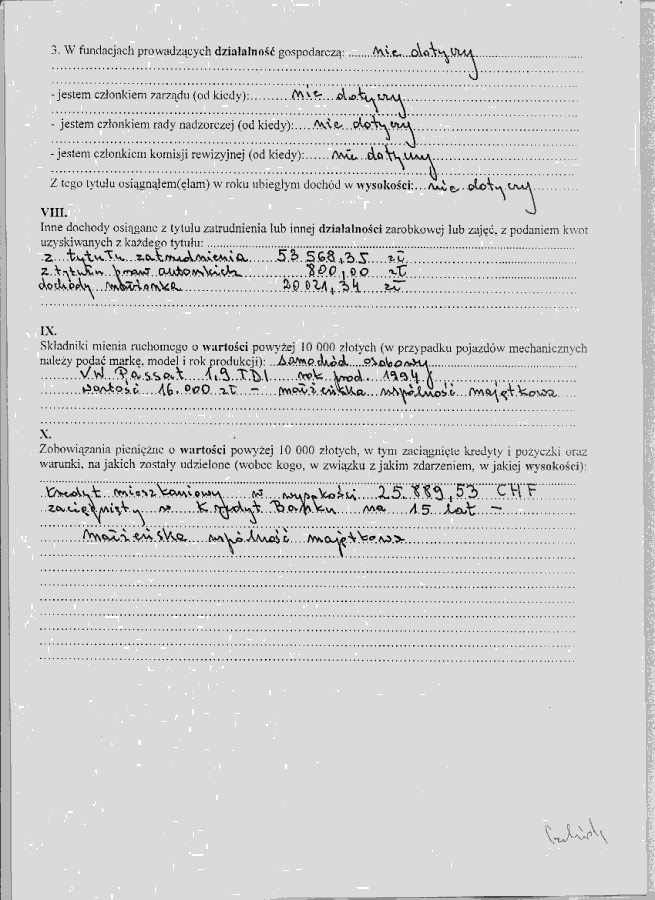 3. W fundacjach prowadzących działalność gospodarczą: nie dotyczy
- jestem członkiem zarządu (od kiedy): nie dotyczy
- jestem członkiem rady nadzorczej (od kiedy): nie dotyczy
- jestem członkiem komisji rewizyjnej (od kiedy): nie dotyczy
Z tego tytułu osiągnąłem(ęłam) w roku ubiegłym dochód w wysokości: nie dotyczy
VIII.
Inne dochody osiągane z tytułu zatrudnienia lub innej działalności zarobkowej lub zajęć, z podaniem kwot
uzyskiwanych z każdego tytułu:
z tytułu zatrudnienia 53 568,35 zł
z tytułu praw autorskich 800,00 zł
dochody małżonka 20 021,34 zł
IX.
Składniki mienia ruchomego o wartości powyżej 10 000 złotych (w przypadku pojazdów mechanicznych
należy podać markę, model i rok produkcji): samochód osobowy
VW Passat 1,9 TDI rok prod. 1994
wartość 16.000 zł - małżeńska wspólność majątkowa
X.
Zobowiązania pieniężne o wartości powyżej 10 000 złotych, w tym zaciągnięte kredyty i pożyczki oraz
warunki, na jakich zostały udzielone (wobec kogo, w związku z jakim zdarzeniem, w jakiej wysokości):
kredyt mieszkaniowy w wysokości 25.889,53 CHF
zaciągnięty w Kredyt Banku na 15 lat -
małżeńska wspólność majątkowa